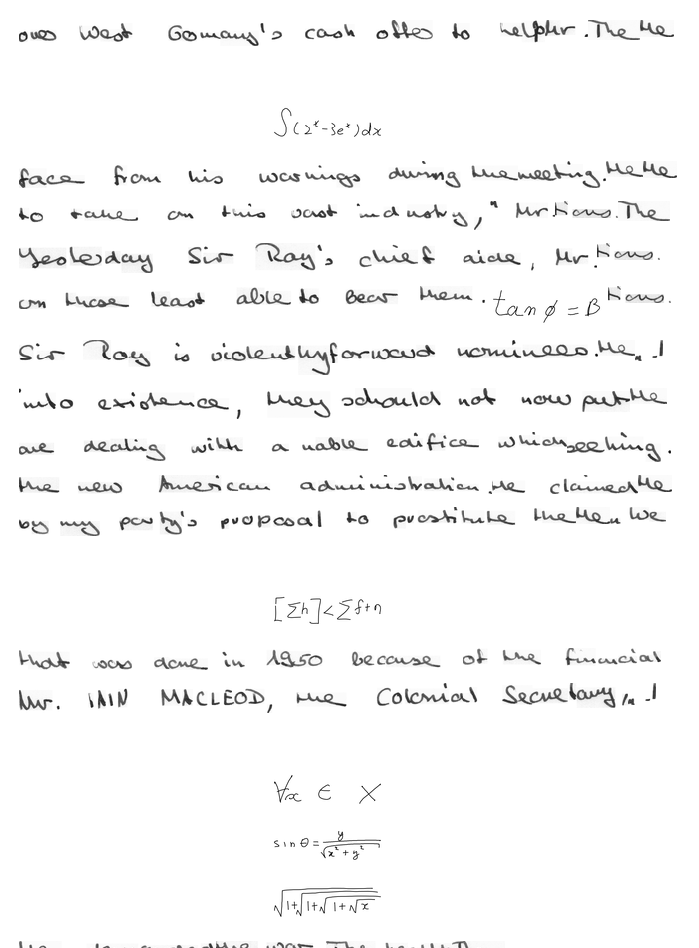 over West Germany's cash offer to helpHr. The He
∫(2ˣ-3eˣ)dx
face from his warnings during the meeting. He He
to take on this vast industry," Mr tions. The
Yesterday Sir Ray's chief aide, Mr. tions.
on those least able to bear them. tan φ = β tions.
Sir Roy is violently forward nominees. He
into existence, they should not now put He
are dealing with a noble edifice which seeking.
the new American administration. He claimed He
by my party's proposal to prostitute the He We
[Σh] < Σf+n
that was done in 1950 because of the financial
Mr. IAIN MACLEOD, the Colonial Secretary,
∀x ∈ X
sin θ = y/√(x²+y²)
√(1+√(1+√(1+√x)))